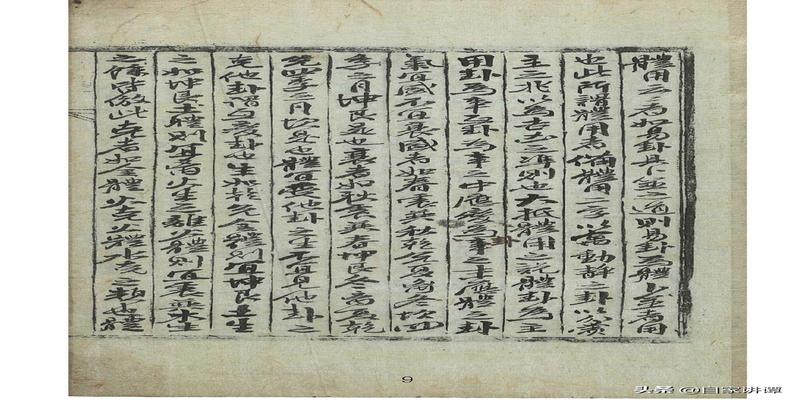 體用云者如易卦具卜筮之道則易卦為體卜筮為用
也此所謂體用者借體用二字以寓動靜之卦以分
主之兆以為吉凶之準則也大抵體用之說體卦為主
用卦為事互卦為事之中應變為事之主應體之卦
氣宜盛不宜衰盛者如春震巽秋乾兌夏离冬坎四
季之月坤艮是也衰者如秋震巽春坤艮冬离夏乾
兌四季之月坎是也體宜受他卦之生不宜見他卦之
克他卦謂互變卦也生如乾兌金體則宜坤艮土生
之如坤艮土體則宜离火生離火體則宜震巽木生
之餘皆倣此克者如金體火克火體水克之類也體
9
头条 @自家讲谭